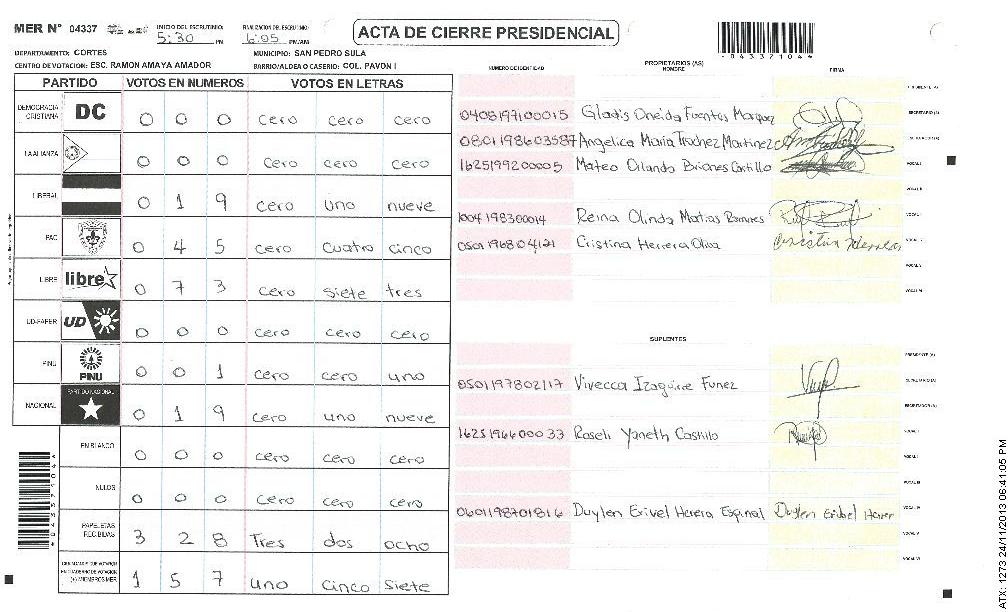 MER N° 04337 INICIO DEL ESCRUTINIO: 5:30 PM FINALIZACION DEL ESCRUTINIO: 6:05 PM/AM
ACTA DE CIERRE PRESIDENCIAL
*04337104*
DEPARTUMENTO: CORTES MUNICIPIO: SAN PEDRO SULA
CENTRO DE VOTACION: ESC. RAMON AMAYA AMADOR BARRIO/ALDEA O CASERIO: COL. PAVON I
PARTIDO VOTOS EN NUMEROS VOTOS EN LETRAS
DEMOCRACIA CRISTIANA DC 0 0 0 cero cero cero
LA ALIANZA 0 0 0 cero cero cero
LIBERAL 0 1 9 cero uno nueve
PAC 0 4 5 cero cuatro cinco
LIBRE libre 0 7 3 cero siete tres
UD-FAPER UD 0 0 0 cero cero cero
PINU PINU 0 0 1 cero cero uno
NACIONAL PARTIDO NACIONAL 0 1 9 cero uno nueve
EN BLANCO 0 0 0 cero cero cero
NULOS 0 0 0 cero cero cero
PAPELETAS RECIBIDAS 3 2 8 Tres dos ocho
(+) MIEMBROS MER 1 5 7 uno cinco siete
NUMERO DE IDENTIDAD PROPIETARIOS (AS) NOMBRE FIRMA
PRESIDENTE (A)
0408197100015 Gladis Oneida Fuentes Marquez SECRETARIO (A)
0801198603587 Angelica Maria Trochez Martinez
1625199200005 Mateo Orlando Briones Castillo VOCAL I
VOCAL II
1004198300014 Reina Olinda Matias Ramires
0501196804121 Cristina Herrera Oliva Cristina Herrera
VOCAL V
VOCAL VI
SUPLENTES
PRESIDENTE (A)
0501197802117 Vivecca Izaguirre Funez SECRETARIO (A)
ESCRUTADOR (A)
1625196600033 Roseli Yaneth Castillo VOCAL I
VOCAL II
VOCAL III
0601198701816 Duylen Erivel Herera Espinal Duylen Eribel Herer VOCAL IV
VOCAL V
VOCAL VI
*04337104*
ATX: 1273 24/11/2013 06:41:05 PM